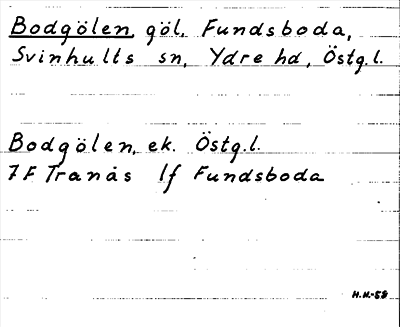 Bodgölen, göl, Fundsboda,
Svinhults sn, Ydre hd, Östg.l.
Bodgölen, ek. Östg.l.
7F Tranås 1f Fundsboda
H.K.-58